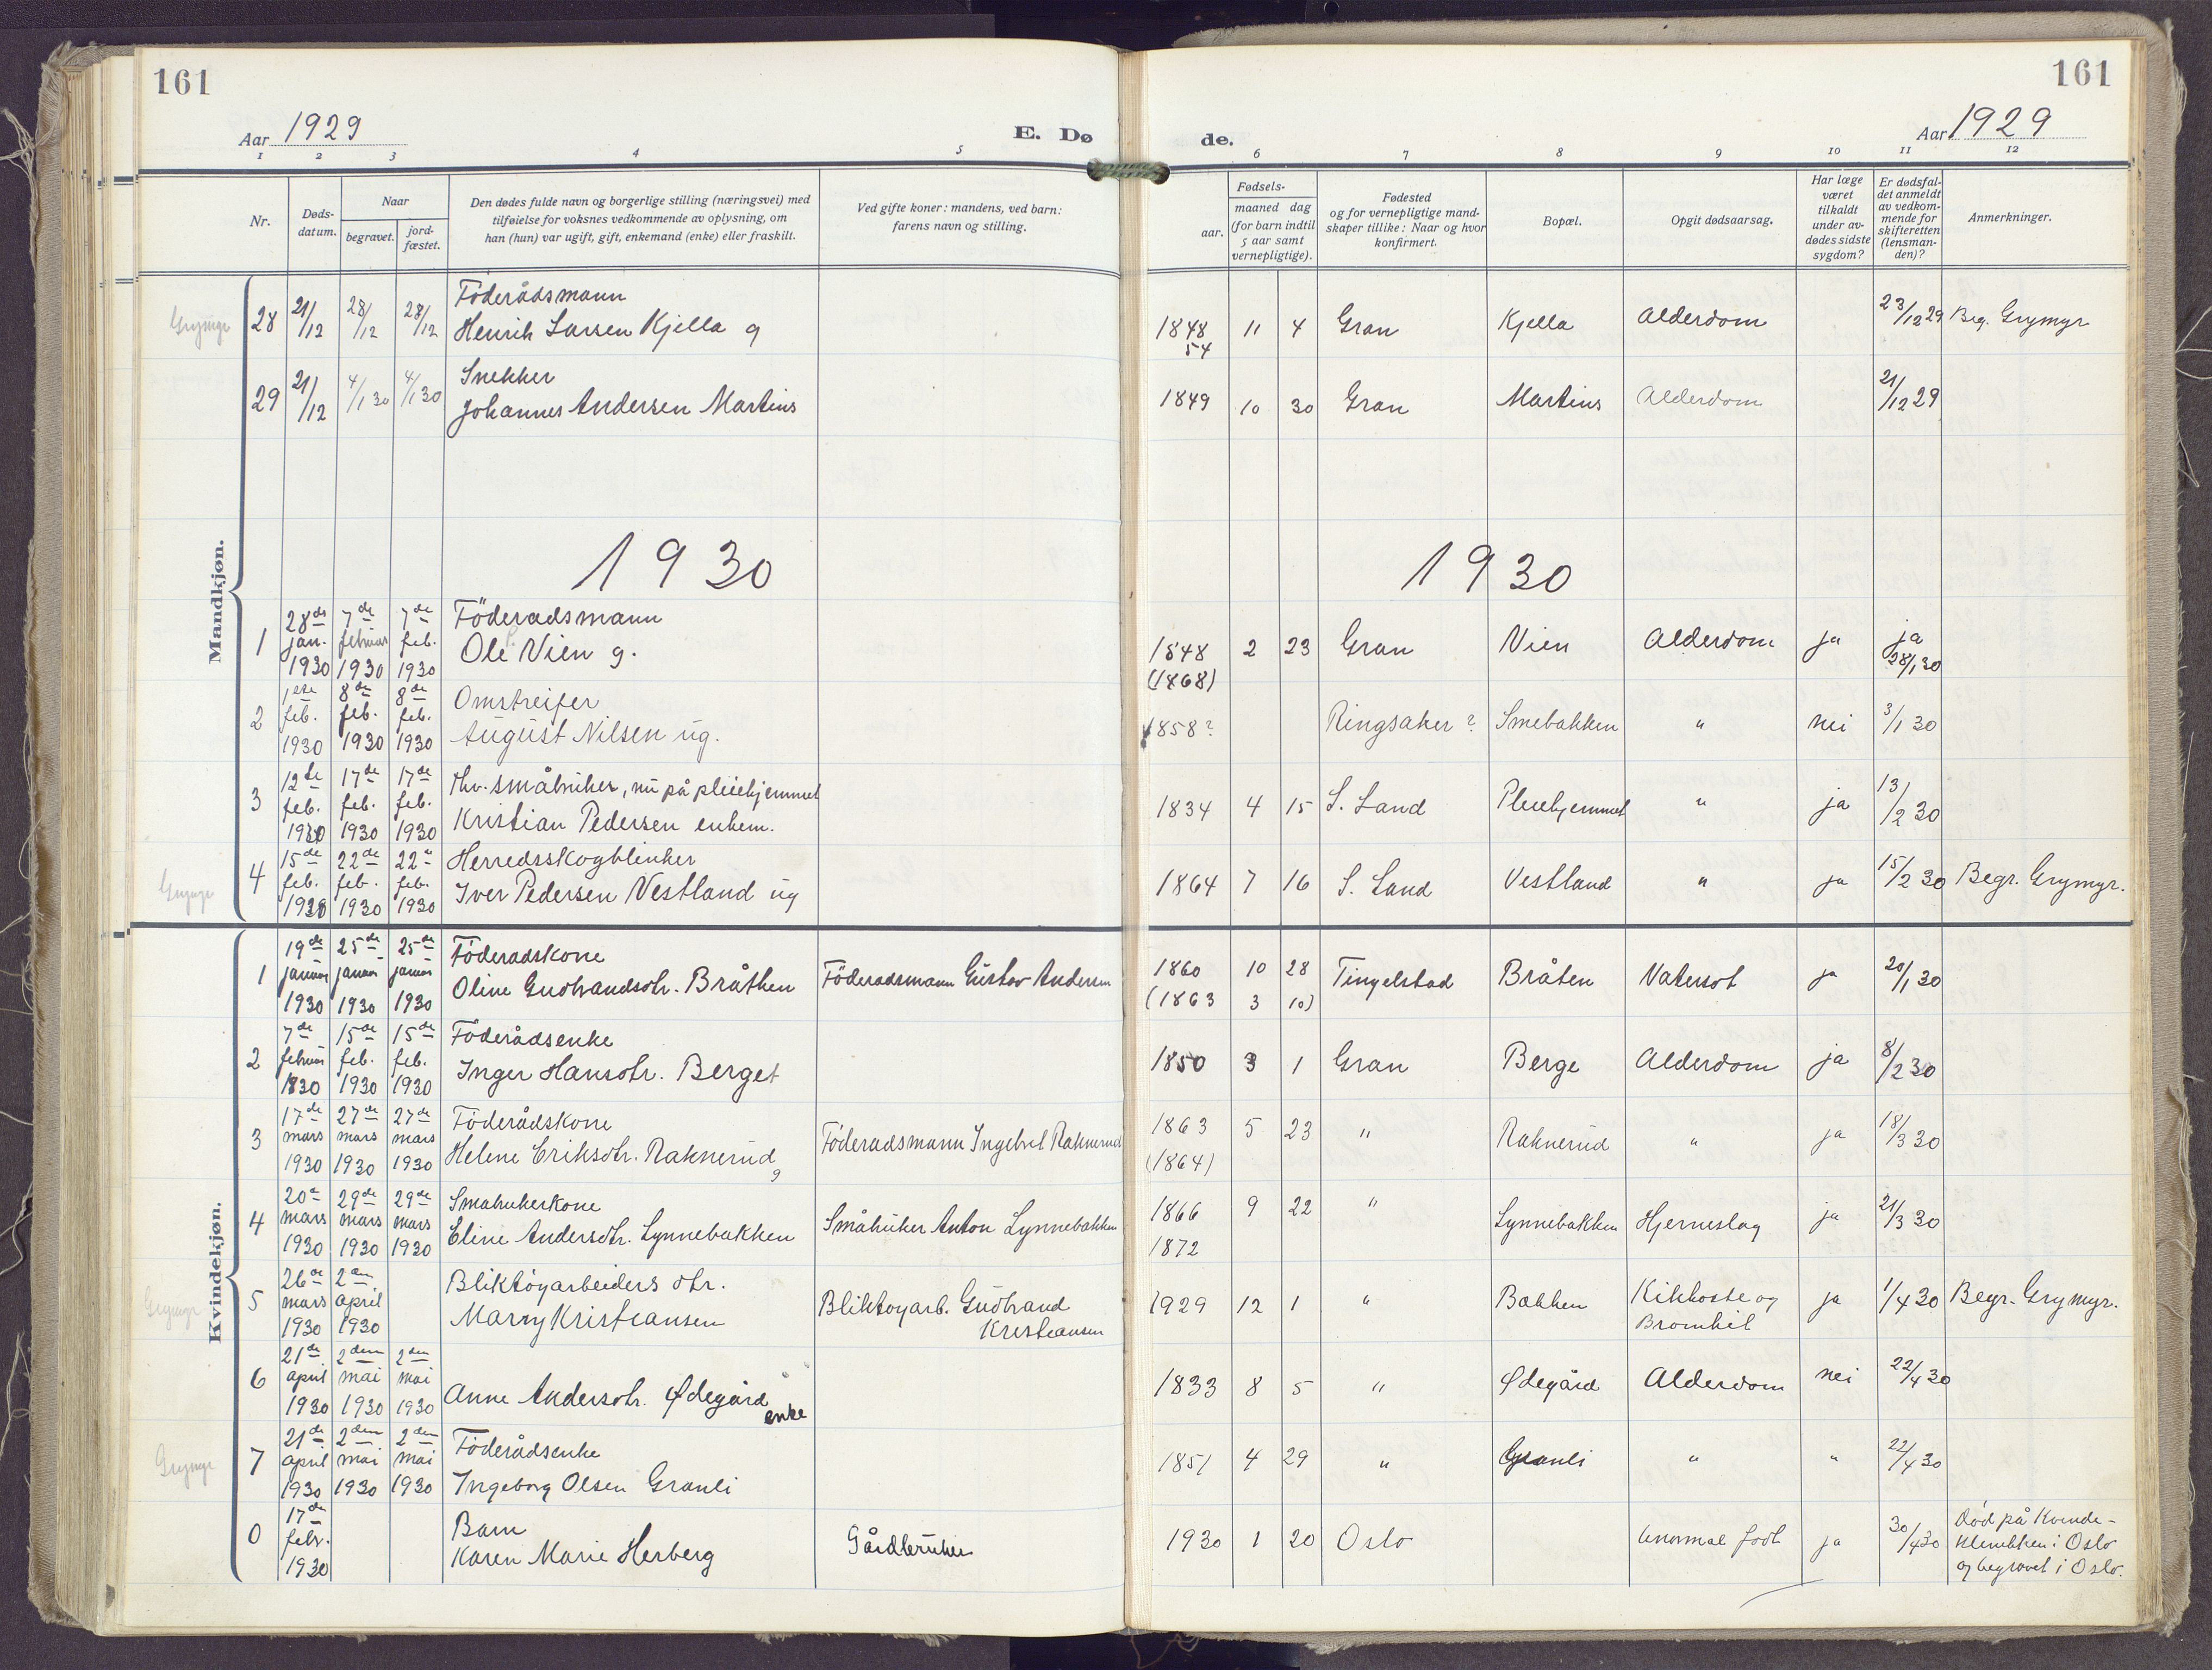 161
161
Aar 1929
E. Dø
de.
Aar 1929
1 2 3 4 5 6 7 8 9 10 11 12
Nr.
Døds-
datum.
Naar
begravet.
jord-
fæstet.
Den dødes fulde navn og borgerlige stilling (næringsvei) med
tilføielse for voksnes vedkommende av oplysning, om
han (hun) var ugift, gift, enkemand (enke) eller fraskilt.
Ved gifte koner: mandens, ved barn:
farens navn og stilling.
Fødsels-
aar.
maaned dag
(for barn indtil
5 aar samt
vernepligtige).
Fødested
og for vernepligtige mand-
skaper tillike: Naar og hvor
konfirmert.
Bopæl.
Opgit dødsaarsag.
Har læge
været
tilkaldt
under av-
dødes sidste
sygdom?
Er dødsfal-
det anmeldt
av vedkom-
mende for
skifteretten
(lensman-
den)?
Anmerkninger.
Mandkjøn.
Grymyr 28 21/12 28/12 28/12 Föderådsmann
Henrik Larsen Kjella g 1848 11 4 Gran Kjella Alderdom 23/12 29 Beg. Grymyr
54
29 21/12 4/1 30 4/1 30 Snekker
Johannes Andersen Martins 1849 10 30 Gran Martins Alderdom 21/12 29
1930
1930
1 28de jan. 1930 7de februar 1930 7de feb. 1930 Föderadsmann
Ole Vien g. 1848 2 23 Gran Vien Alderdom ja ja 28/1 30
(1868)
2 1ste feb. 1930 8de feb. 1930 8de feb. 1930 Omstreifer
August Nilsen ug. 1858? Ringsaker? Smebakken " nei 3/1 30
3 12te feb. 1930 17de feb. 1930 17de feb. 1930 fhv. småbruker, nu på pleiehjemmet
Kristian Pedersen enkem. 1834 4 15 S. Land Pleiehjemmet " ja 13/2 30
Grymyr 4 15de feb. 1930 22de feb. 1930 22de feb. 1930 Herredsskogblinker
Iver Pedersen Vestland ug 1864 7 16 S. Land Vestland " ja 15/2 30 Begr. Grymyr.
Kvindekjøn.
1 19de januar 1930 25de januar 1930 25de januar 1930 Föderadskone
Oline Gudbrandsdtr. Bråthen Föderadsmann Gustav Andersen 1860 10 28 Tingelstad Bråten Vatersot ja 20/1 30
(1863 3 10)
2 7de februar 1930 15de feb. 1930 15de feb. 1930 Föderådsenke
Inger Hansdtr. Berget 1850 3 1 Gran Berge Alderdom ja 8/2 30
3 17de mars 1930 27de mars 1930 27de mars 1930 Föderådskone
Helene Eriksdtr. Raknerud g Föderadsmann Ingebret Raknerud 1863 5 23 " Raknerud " ja 18/3 30
(1864)
4 20de mars 1930 29de mars 1930 29de mars 1930 Småbrukerkone
Eline Andersdtr. Lynnebakken Småbruker Anton Lynnebakken 1866 9 22 " Lynnebakken Hjerneslag ja 21/3 30
1872
Grymyr 5 26de mars 1930 2den april 1930 Bliktöyarbeiders dtr.
Marny Kristiansen Bliktoyarb. Gudbrand
Kristiansen 1929 12 1 " Bakken Kikhoste og
Bronkit ja 1/4 30 Begr. Grymyr.
6 21de april 1930 2den mai 1930 2den mai 1930
Anne Andersdtr. Ødegård
enke 1833 8 5 " Ødegård Alderdom nei 22/4 30
Grymyr 7 21de april 1930 2den mai 1930 2den mai 1930 Föderådsenke
Ingeborg Olsen Granli 1851 4 29 " Granli " " 22/4 30
0 17de febr. 1930 Barn
Karen Marie Herberg Gårdbruker 1930 1 20 Oslo født ja 30/4 30 Död på Kvinde-
klinikken i Oslo
og begravet i Oslo.